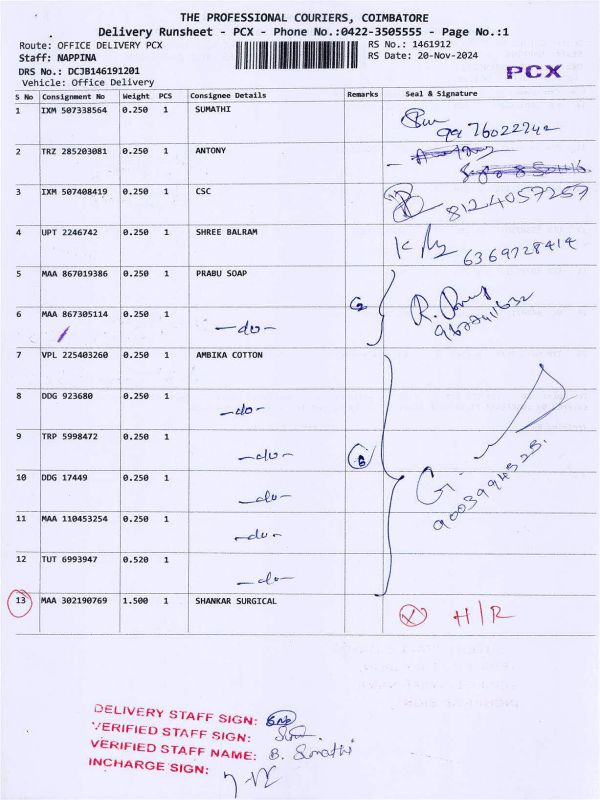 THE PROFESSIONAL COURIERS, COIMBATORE
Delivery Runsheet - PCX - Phone No.:0422-3505555 - Page No.:1
Route: OFFICE DELIVERY PCX
RS No.: 1461912
Staff: NAPPINA
RS Date: 20-Nov-2024
DRS No.: DCJB146191201
Vehicle: Office Delivery
PCX
S No Consignment No Weight PCS Consignee Details Remarks Seal & Signature
1 IXM 507338564 0.250 1 SUMATHI 9976022242
2 TRZ 285203081 0.250 1 ANTONY
3 IXM 507408419 0.250 1 CSC 8124057257
4 UPT 2246742 0.250 1 SHREE BALRAM 6369728414
5 MAA 867019386 0.250 1 PRABU SOAP
6 MAA 867305114 0.250 1 -do-
7 VPL 225403260 0.250 1 AMBIKA COTTON
8 DDG 923680 0.250 1 -do-
9 TRP 5998472 0.250 1 -do- 6
10 DDG 17449 0.250 1 -do-
11 MAA 110453254 0.250 1 -do-
12 TUT 6993947 0.520 1 -do-
13 MAA 302190769 1.500 1 SHANKAR SURGICAL X H/R
DELIVERY STAFF SIGN:
VERIFIED STAFF SIGN:
VERIFIED STAFF NAME: B. Sumathi
INCHARGE SIGN: